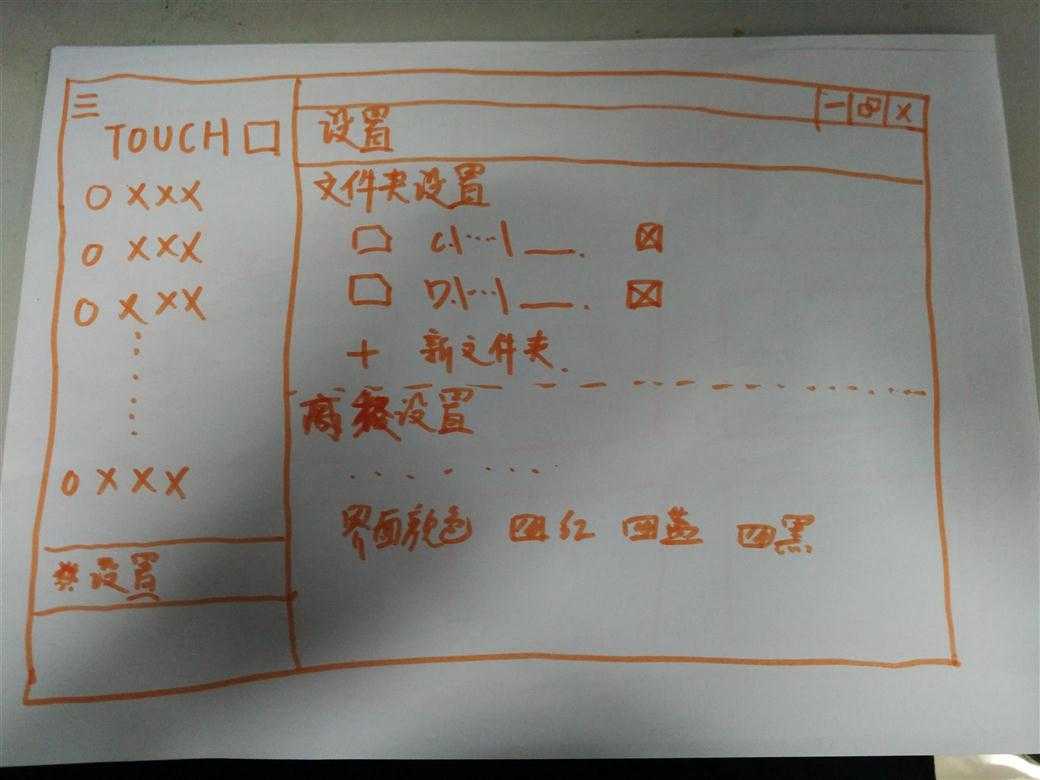 TOUCH
O XXX
O XXX
O XXX
O XXX
设置
设置
文件夹设置
C:\...\
D:\...\
+ 新文件夹
高级设置
界面颜色 红 蓝 黑